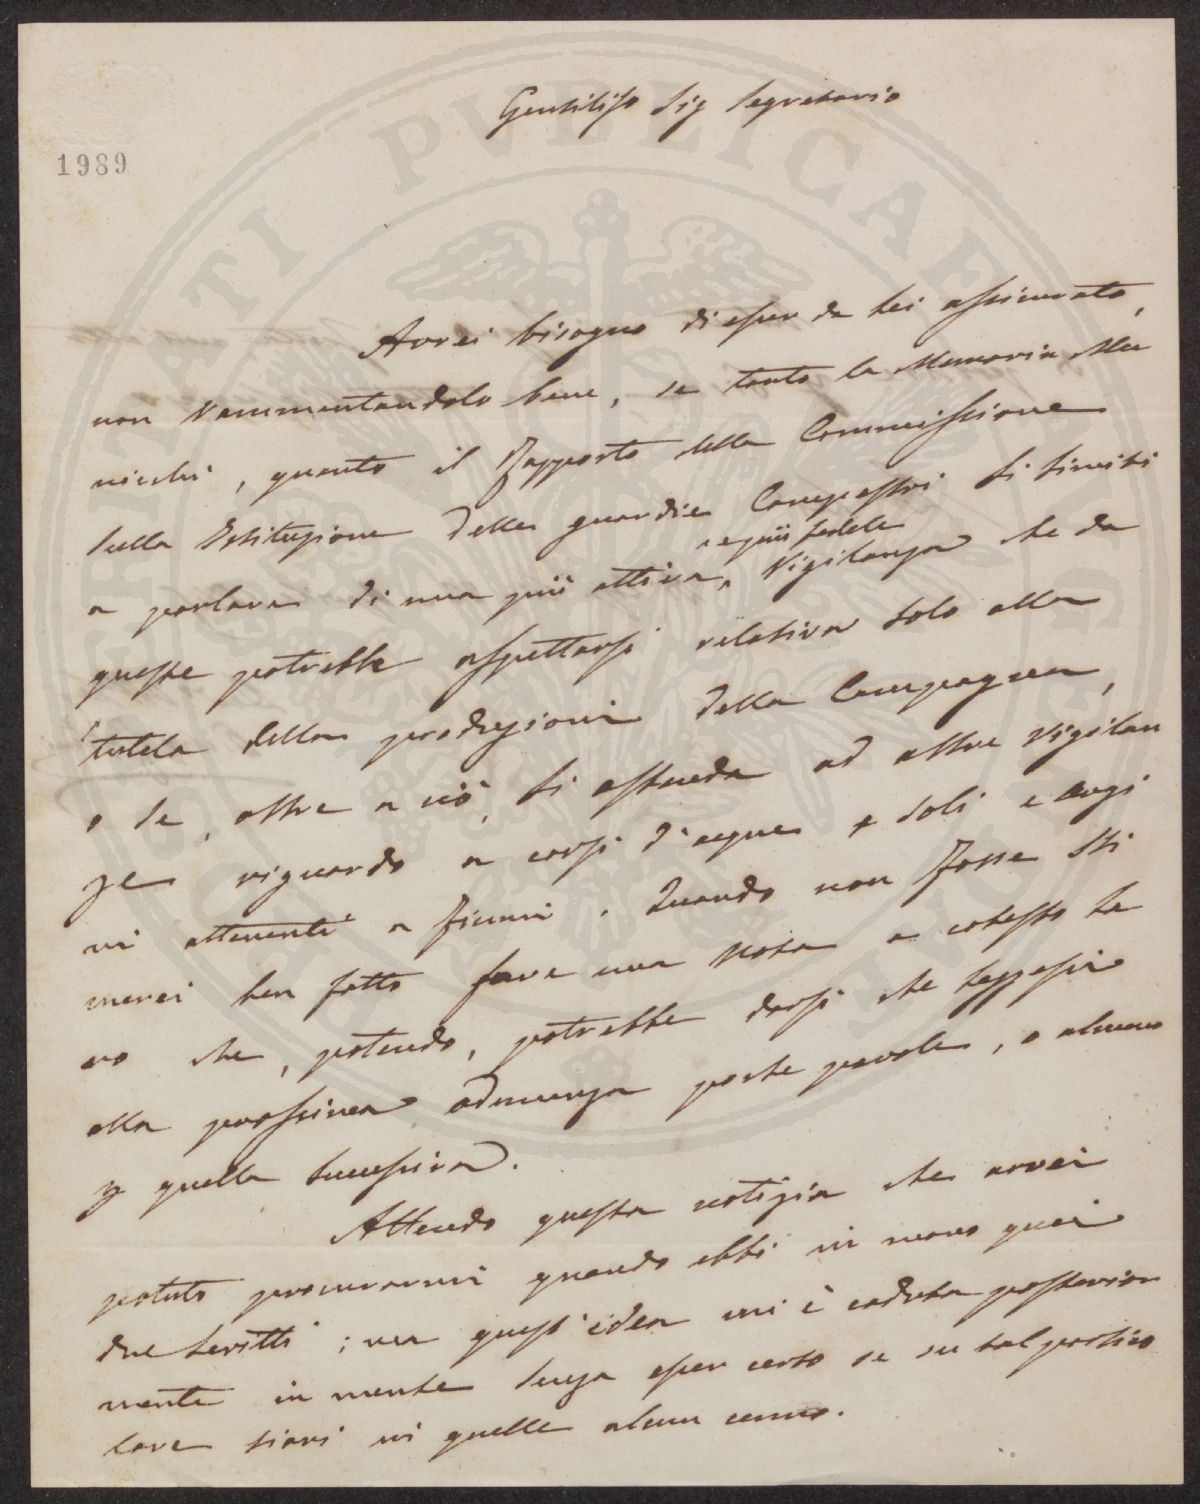 Gentiliss.o Sig Segretario
1989
Avrei bisogno di esser da Lei assicurato,
non rammentandolo bene, se tanto la Memoria Me
nichi, quanto il Rapporto della Commissione
sulla Istituzione delle guardie Campestri si limiti
a parlare di una più attiva, e più fedele Vigilanza che da
queste potrebbe aspettarsi relativa solo alla
tutela delle produzioni della Campagna,
o se, oltre a ciò, si estenda ad altre vigilan
ze riguardo a corsi d'acque e soli e argi
ni attenenti a fiumi. Quando non fosse sti
merei ben fatto fare una Nota a cotesto la
ro che, potendo, potrebbe darsi che leggessi
alla prossima adunanza poche parole, o almeno
p quella successiva.
Attendo questa notizia che avrei
potuto procurarmi quando ebbi in mano quei
due scritti; ma quest'idea mi è caduta posterior
mente in mente senza esser certo se su tal partico
lare siavi in quelle alcun cenno.
PUBLICAE